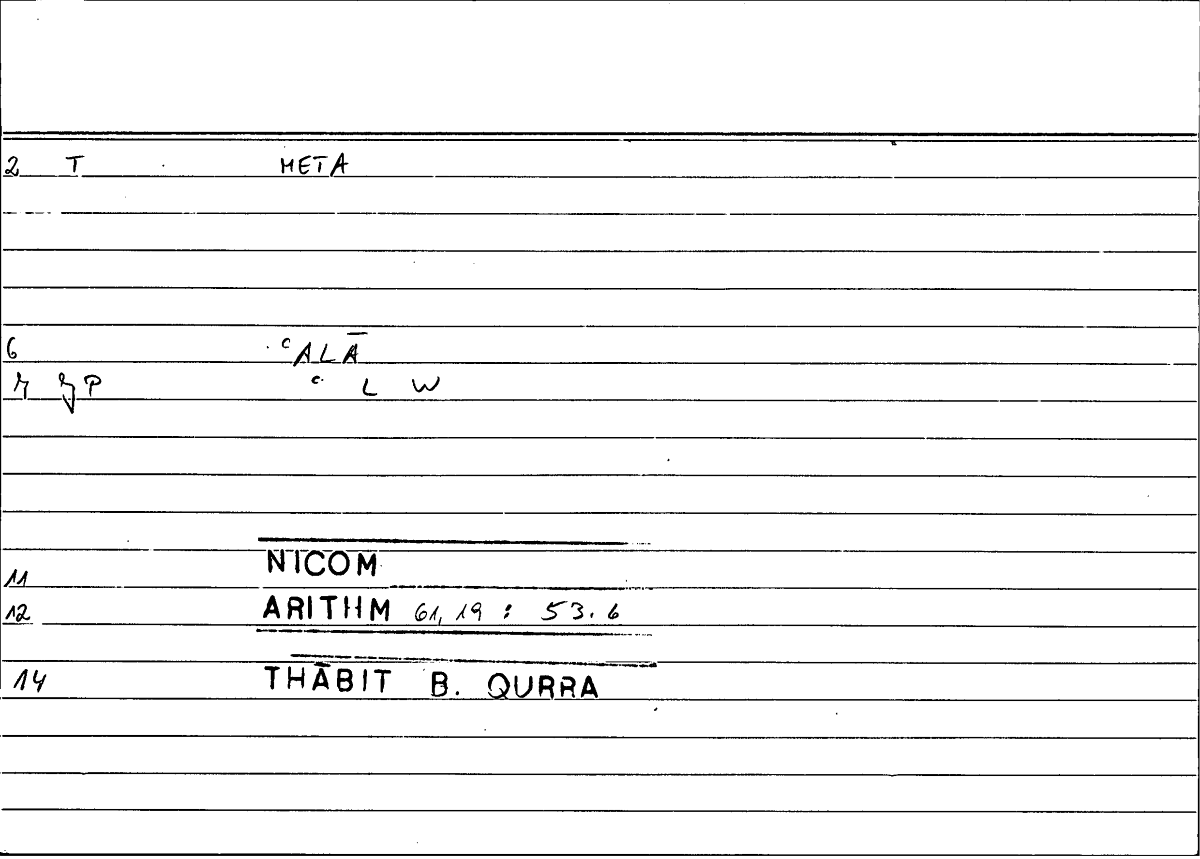 2 T META
6 ʿALĀ
7 P ʿ L W
11 NICOM
12 ARITHM 61,19 : 53.6
14 THĀBIT B. QURRA